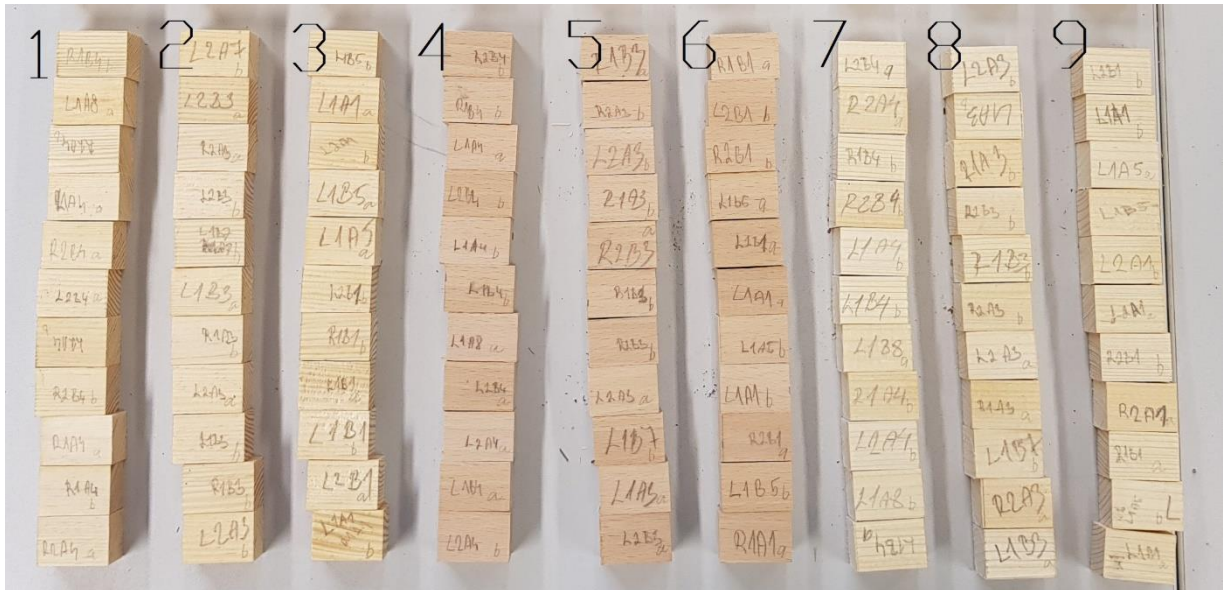 1 2 3 4 5 6 7 8 9
R1B4 b
L1A8 a
L1A4 a
R2B4 a
L2B4 a
R2B4 b
R1A4 a
R1A4 b
R2A4 a
L2A7 b
L2B3 a
R2A3 a
L2B3 b
L1B7
L1B3 a
R1A3 b
L2A3 a
L1B3 b
R1B3 b
L2A3 b
L1B5 b
L1A1 a
L2A1 b
L1B5 a
L1A5 a
L2B1 b
R1B1 b
L1B1 a
L1B1 b
L2B1 a
L1A1 b
R2B4 b
R1B4 b
L1A4 a
L2B4 b
L1A4 b
L1B4 b
L1A8 a
L2B4 a
L2A4 a
L1B4 a
L2A4 b
R1B3 a
R2A3 b
L2A3 b
R1A3 b
a
R2B3
R1B3 b
R2B3 b
L2A3 a
L1B7 b
L1A3 a
L2B3 a
R1B1 a
L2B1 b
R2B1 b
L1B5 a
L1B1 a
L1A1 a
L1A5 b
L1A1 b
R2B1 a
L1B5 b
R1A1 a
L2B4 a
R2A4 a
R1B4 b
R2B4 b
L1A4 b
L1B4 b
L1B8 a
R1A4 b
L2A4 b
L1A8 b
L1B4 a
L2A3 b
L1A3 b
R1A3 b
R1B3 b
R1B3 b
R2A3 b
L2A3 a
R1A3 a
L1B7 b
R2A3 a
L1B3 a
L2B1 b
L1A1 b
L1A5 a
L1B5
L2A1 b
L2A1 a
R2B1 b
R2A1 a
R1B1 a
L1B1 a